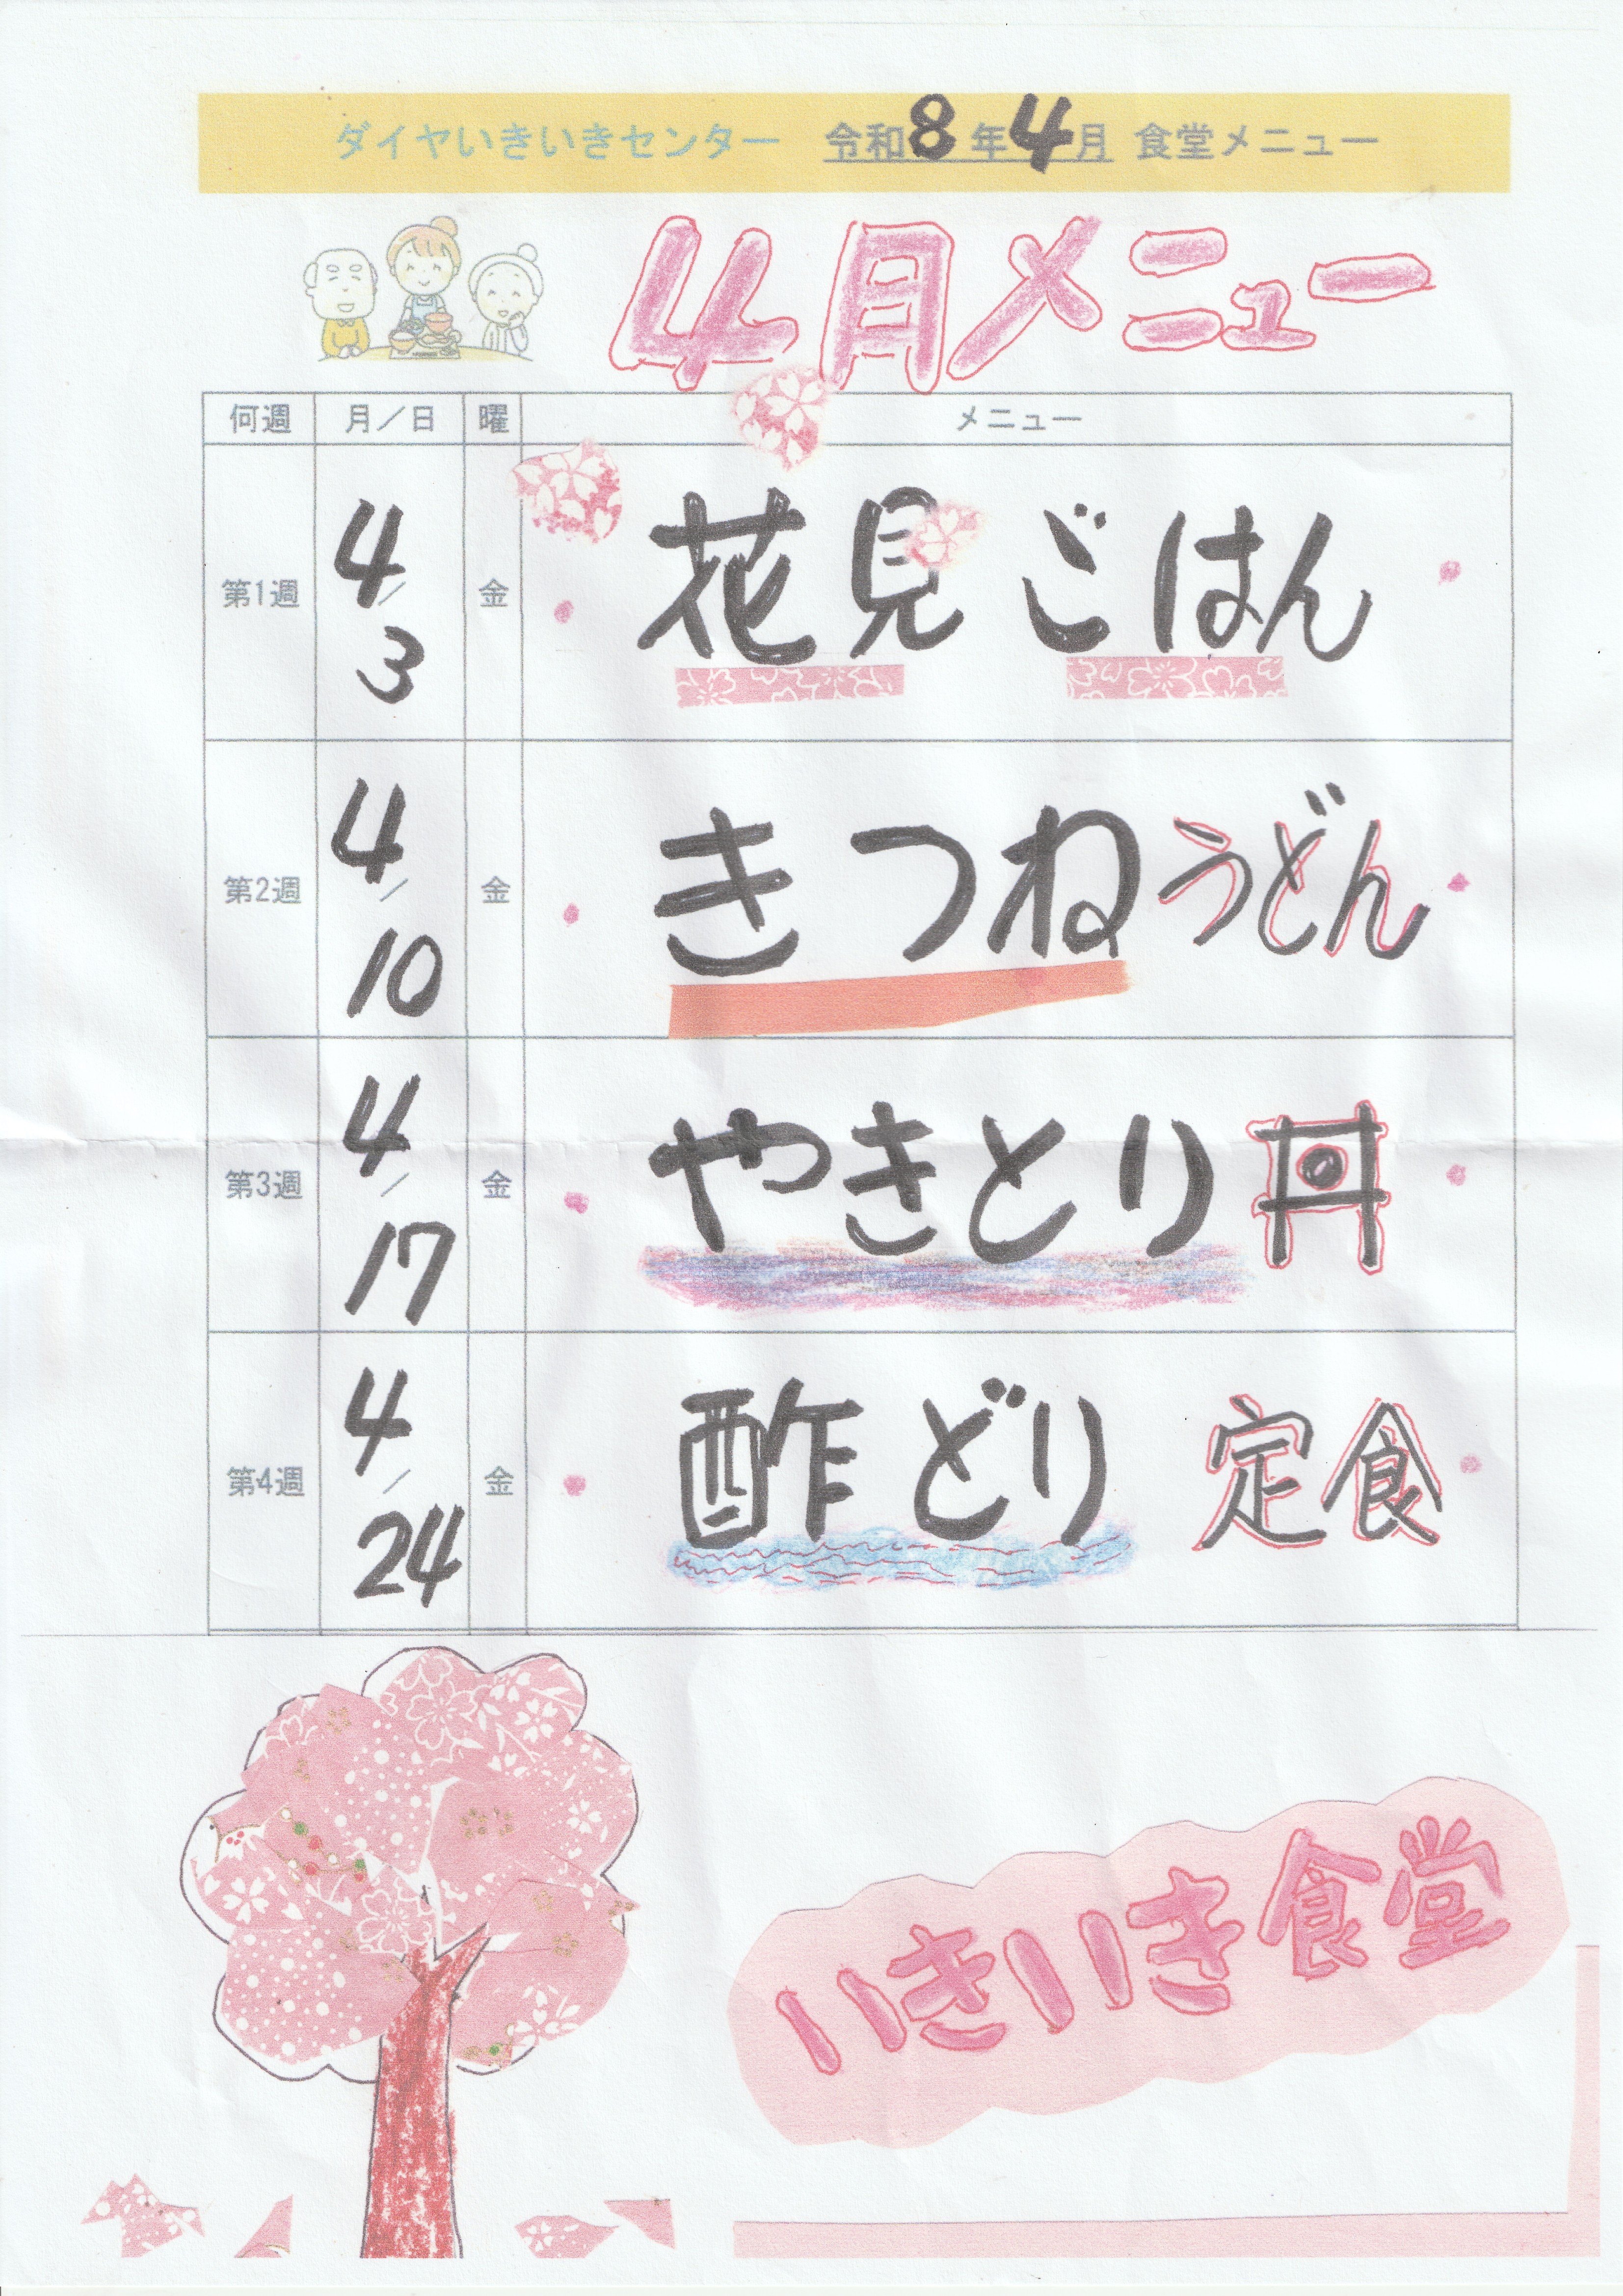 ダイヤいきいきセンター 令和8年4月 食堂メニュー
4月メニュー
何週 月／日 曜 メニュー
第1週 4/3 金 花見ごはん
第2週 4/10 金 きつねうどん
第3週 4/17 金 やきとり丼
第4週 4/24 金 酢どり 定食
いきいき食堂